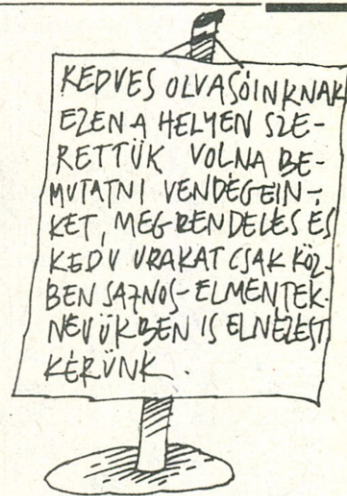 KEDVES OLVASÓINKNAK
EZEN A HELYEN SZE-
RETTÜK VOLNA BE-
MUTATNI VENDÉGEIN-
KET, MEGRENDELÉS ÉS
KEDV URAKAT CSAK KÖZ-
BEN SAJNOS-ELMENTEK-
NEVÜKBEN IS ELNÉZÉST
KÉRÜNK.